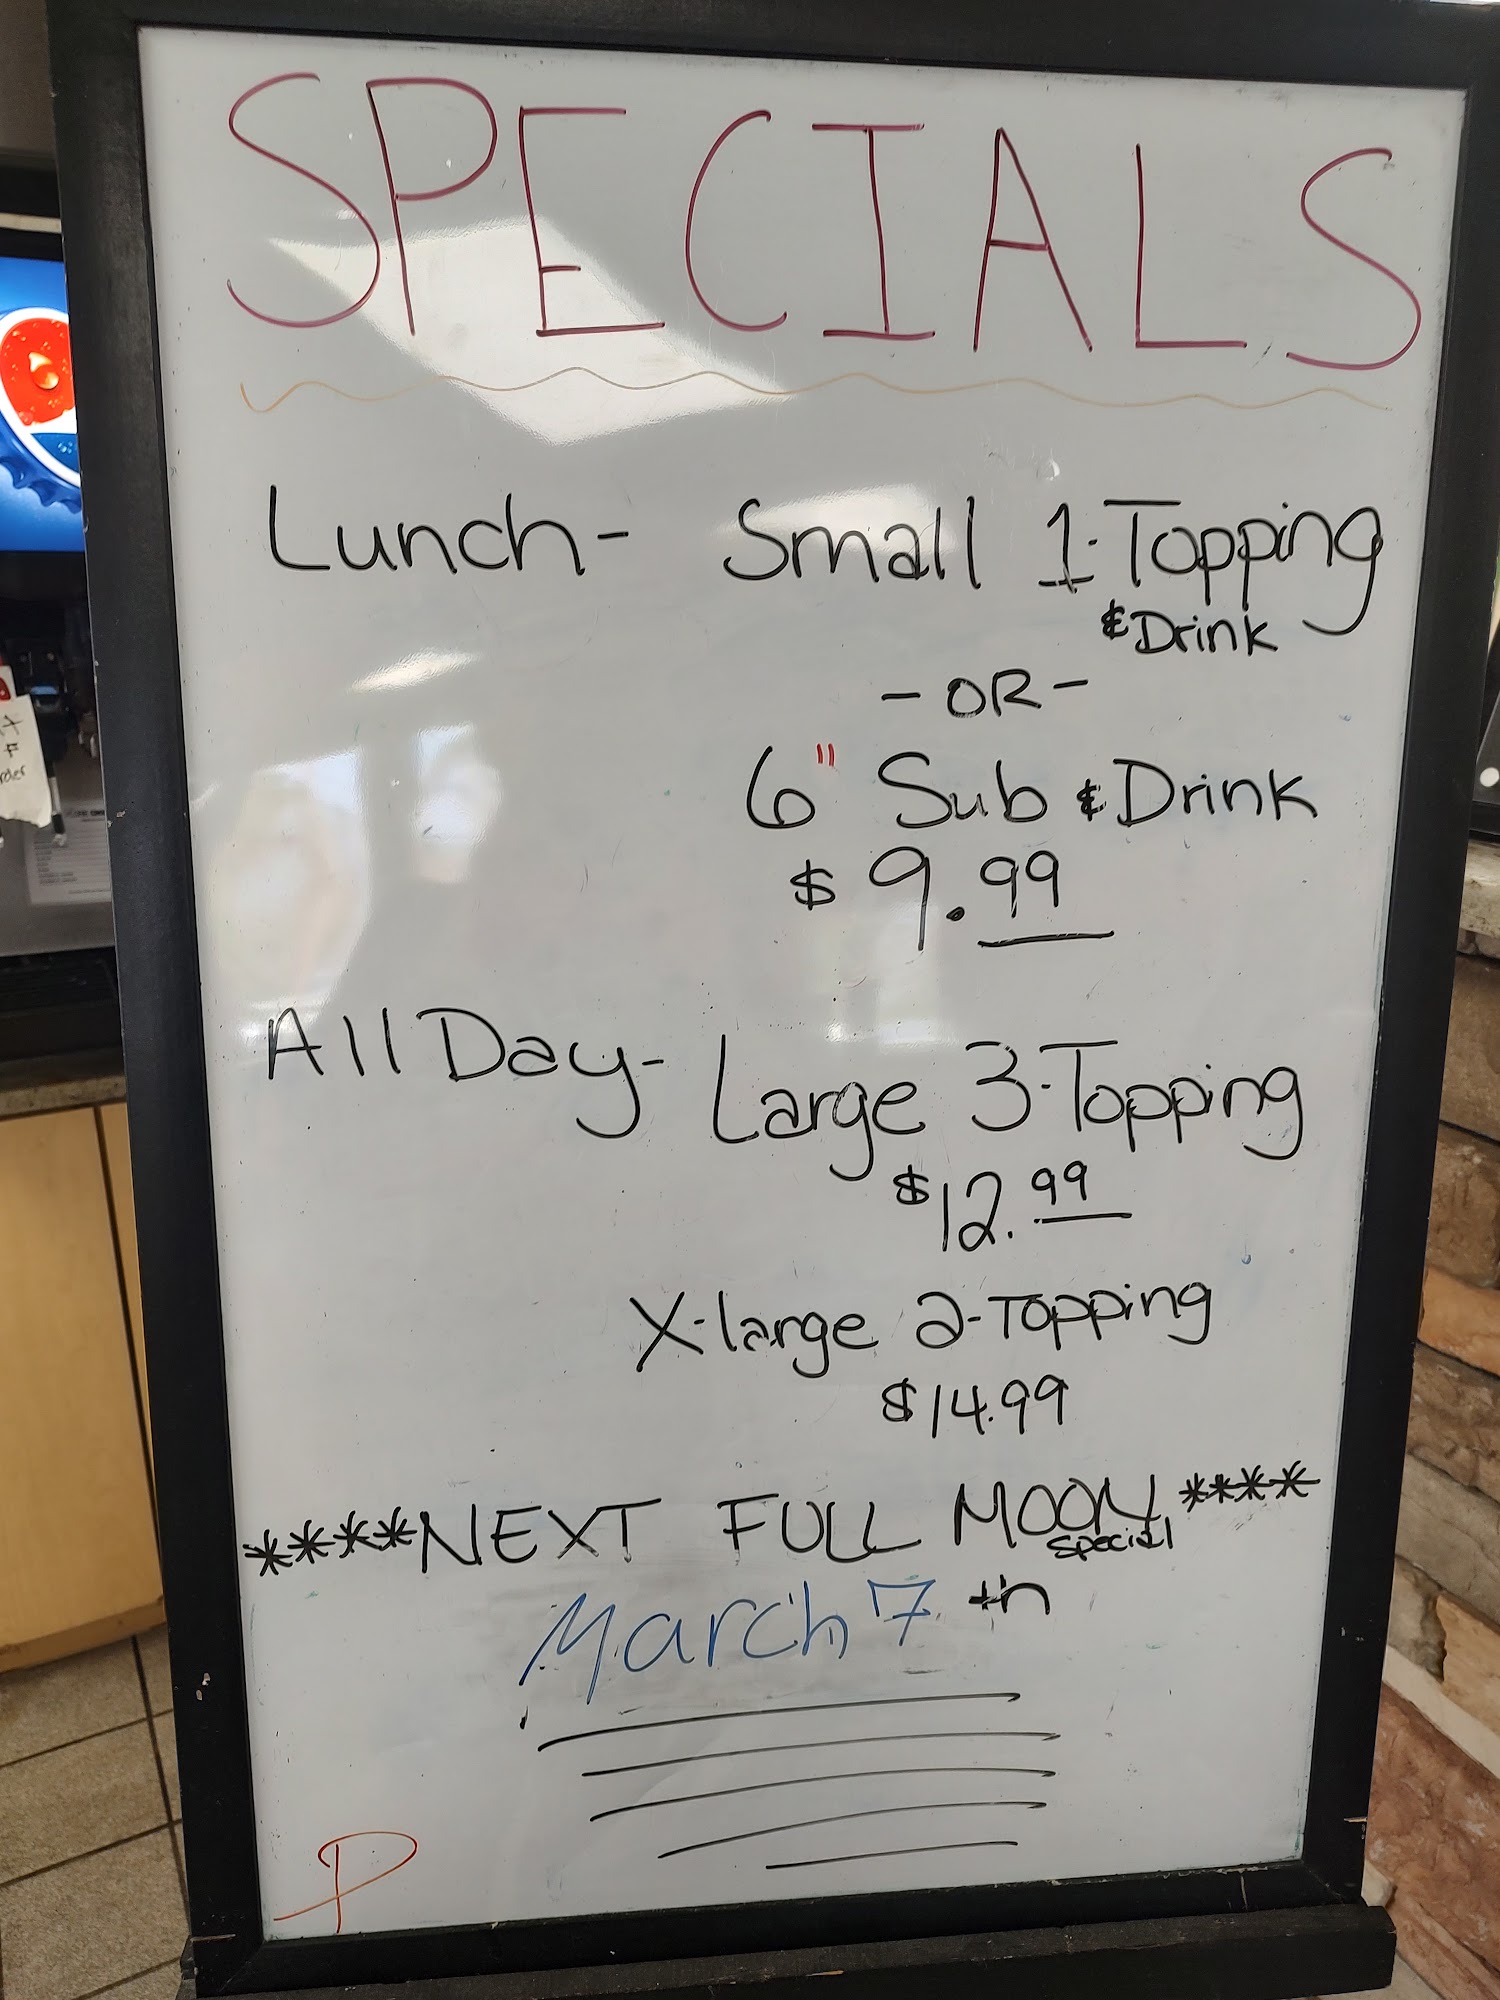 SPECIALS
Lunch- Small 1-Topping
& Drink
- OR -
6" Sub & Drink
$9.99
All Day- Large 3-Topping
$12.99
X-large 2-Topping
$14.99
****NEXT FULL MOON****
special
March 7th
P
order